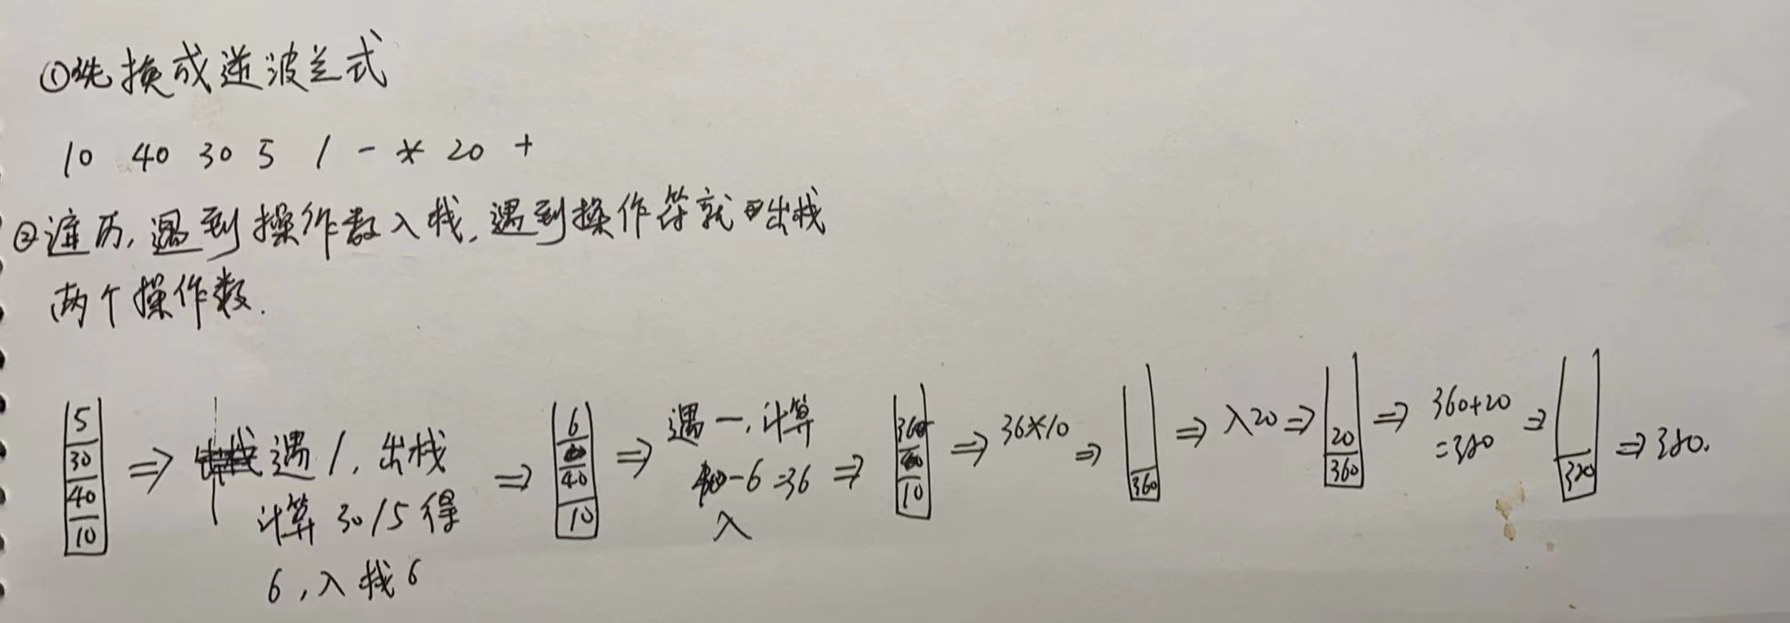 ①先换成逆波兰式
10 40 30 5 / - * 20 +
②遍历,遇到操作数入栈,遇到操作符就出栈
两个操作数.
5
30
40
10
⇒
遇/,出栈
计算 30/5得
6,入栈6
⇒
6
40
10
⇒
遇一,计算
40-6=36
入
⇒
36
10
⇒ 36*10 ⇒
360
⇒ 入20 ⇒
20
360
⇒
360+20
=380
⇒
⇒ 380.